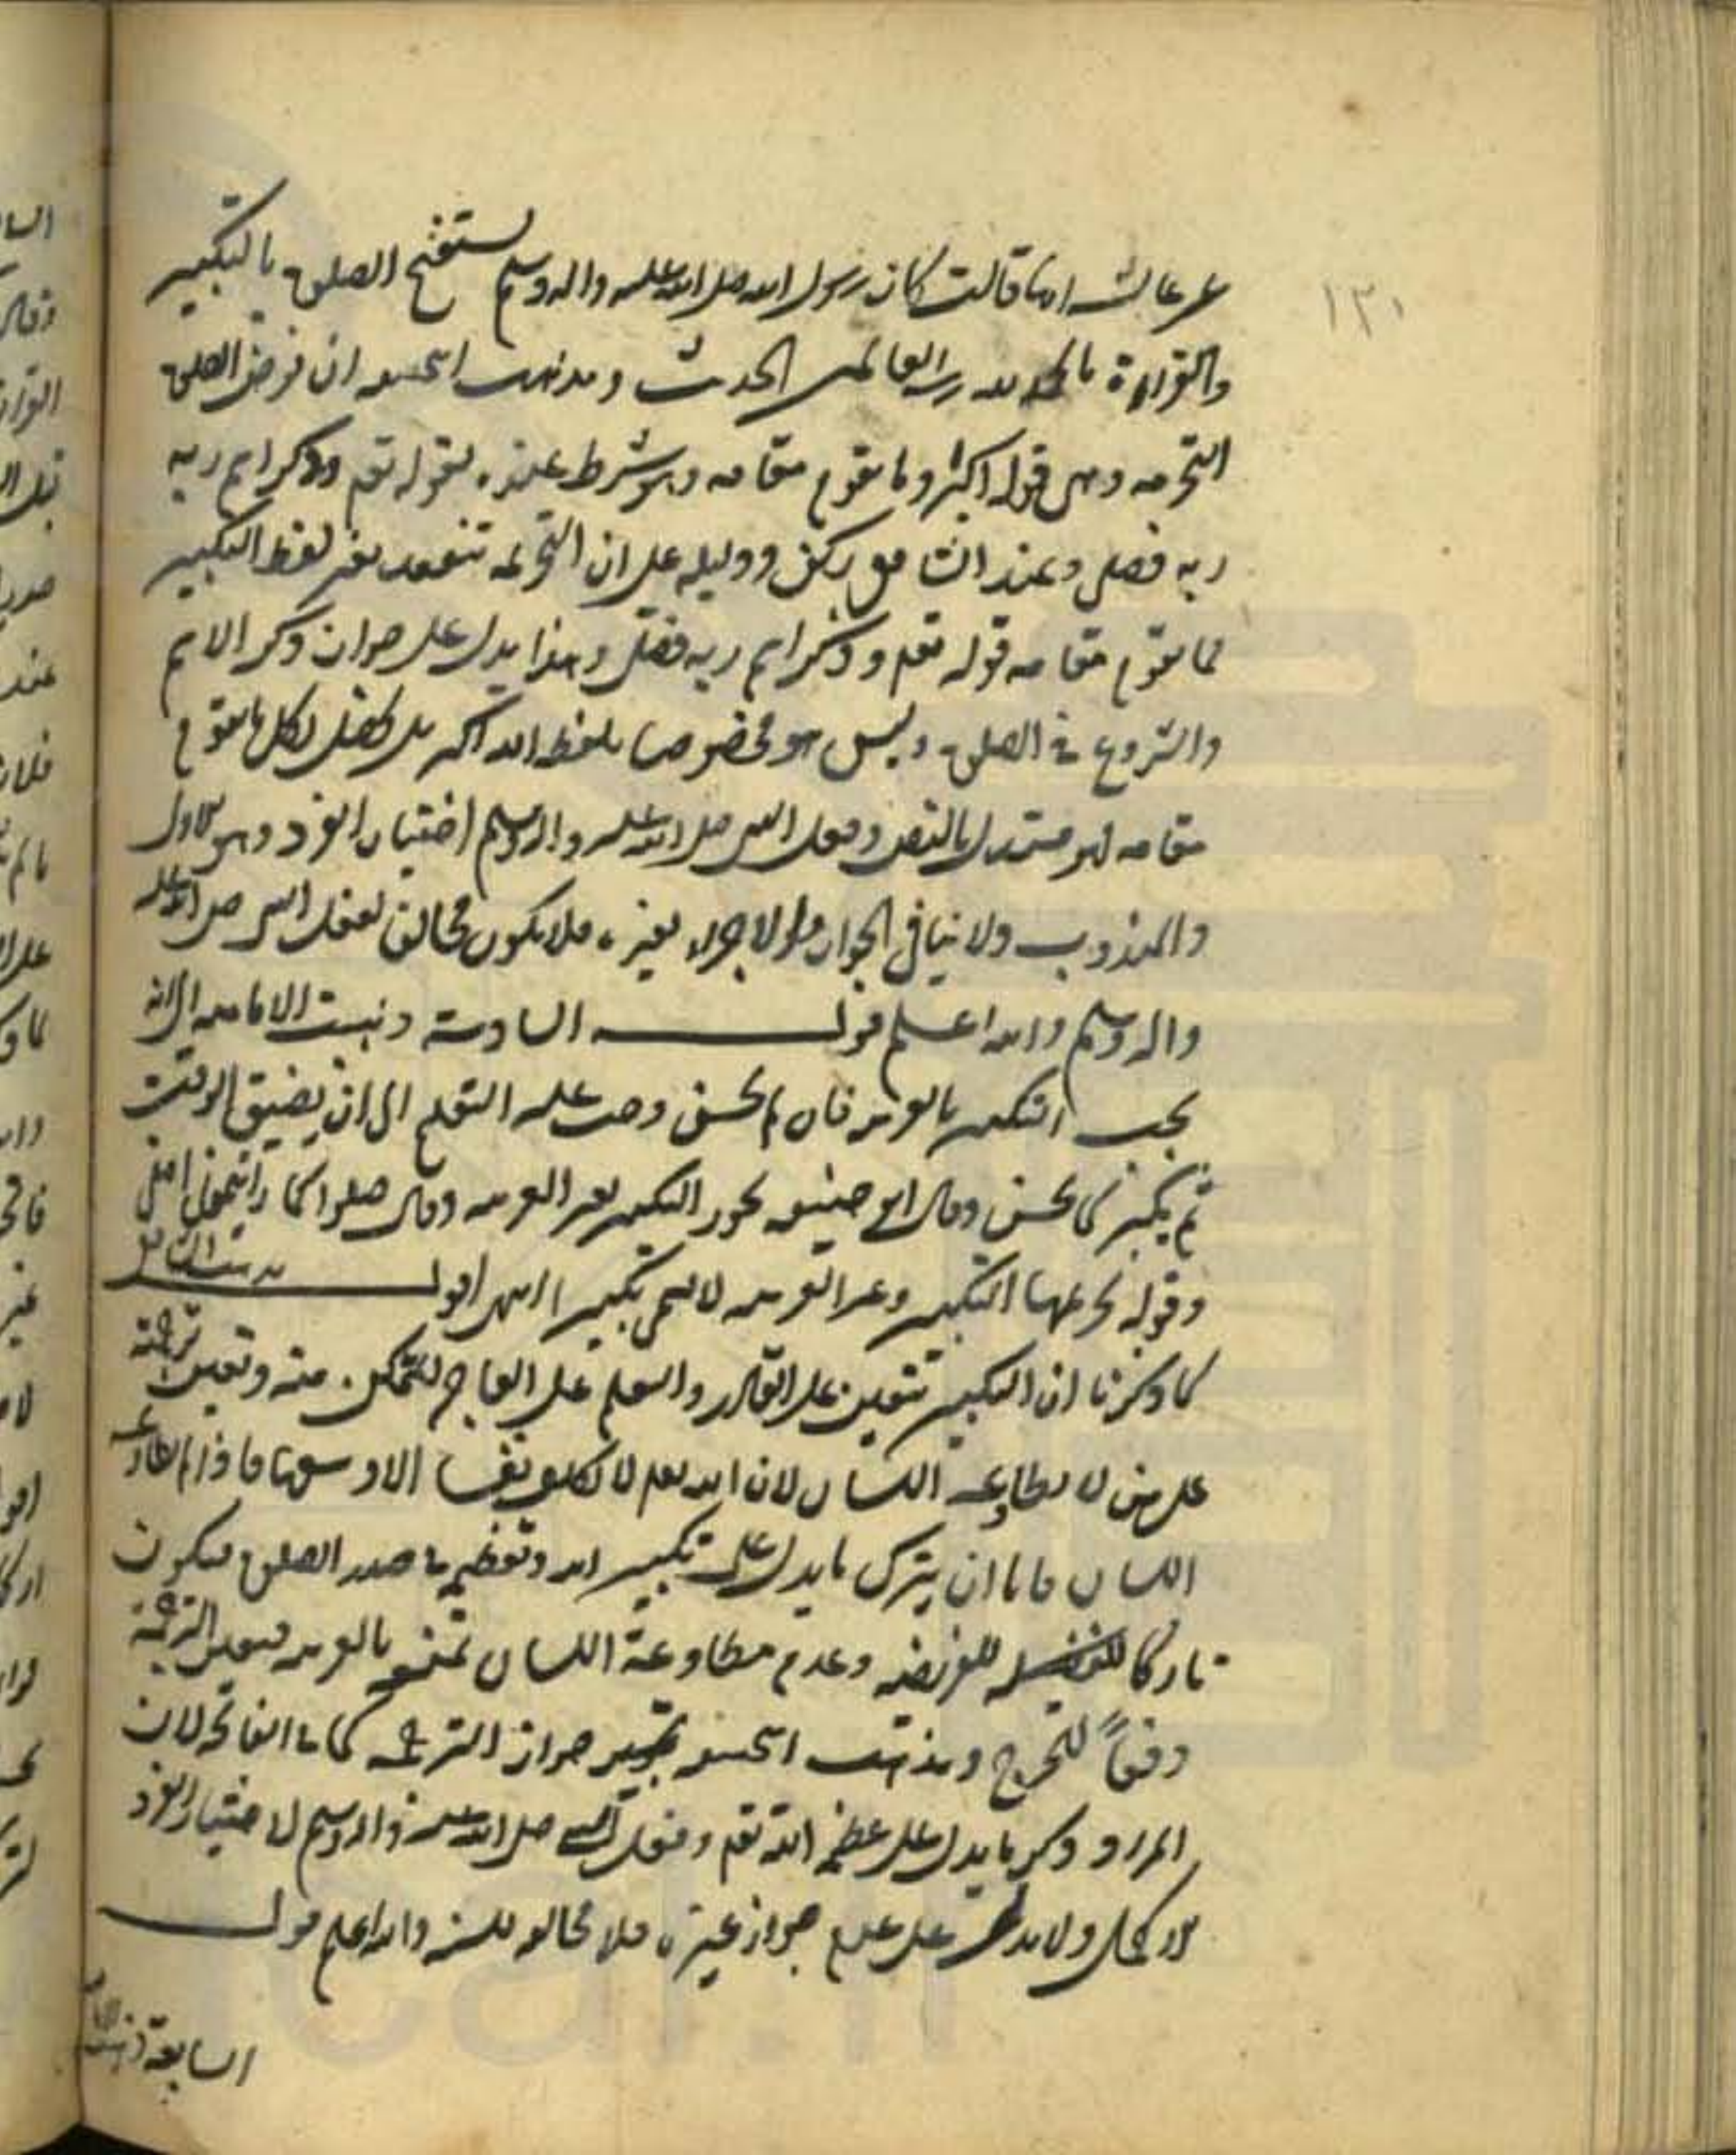 ١٣٠
عن عائشة انها قالت كان رسول الله صلى الله عليه واله وسلم يستفتح الصلوة بالتكبير
والقراءة بالحمد لله رب العالمين الحديث ومذهب الحنفيه ان فرض الصلوة
التحريمه وهي قوله الله اكبر وما يقوم مقامه وهو شرط عنده لقوله تعم وذكر اسم ربه
ربه فصلى وعند الشافعي ركن ودليله على ان التحريمه تنعقد بغير لفظ التكبير
مما يقوم مقامه قوله تعم وذكر اسم ربه فصلى وهذا يدل على جواز ذكر الاسم
والشروع في الصلوة وليس هو مخصوصا بلفظ الله اكبر بل بكل ما يقوم
مقامه فهو مستدل بالنص وفعل النبي صلى الله عليه واله وسلم اختيار الفرد وهو الاول
والمندوب ولا ينافي الجواز والاجزاء بغيره فلا يكون مخالفا لفعل النبي صلى الله عليه
واله وسلم والله اعلم قوله السادسة ذهبت الاماميه الى انه
يجب التكبير بالعربيه فان لم يحسن وجب عليه التعلم الى ان يضيق الوقت
ثم يكبر كما يحسن وقال ابو حنيفه يجوز التكبير بغير العربيه وقال صلوا كما رايتموني اصلي
وقوله تحريمها التكبير وغير العربيه لا يسمى تكبيرا انتهى اقول مذهب الشافعي
كما ذكرنا ان التكبير تتعين على القادر والتعلم على العاجز للتمكن منه وتعين ترجمته
على من لا يطاوعه اللسان لان الله تعم لا يكلف نفسا الا وسعها فاذا لم يطاوعه
اللسان فاما ان يترك ما يدل على تكبير الله وتعظيمه في صدر الصلوة فيكون
تاركا للفريضه وعدم مطاوعة اللسان تمنعه بالعربيه فيعدل الترجمة
دفعاً للحرج ومذهب الحنفيه جواز الترجمه كما في الفاتحه لان
المراد ذكر ما يدل على عظمة الله تعم وفعل النبي صلى الله عليه واله وسلم لاختيار الفرد
الاكمل ولا يدل على عدم جواز غيره فلا مخالفه للسنه والله اعلم قوله
السابعة ذهبت